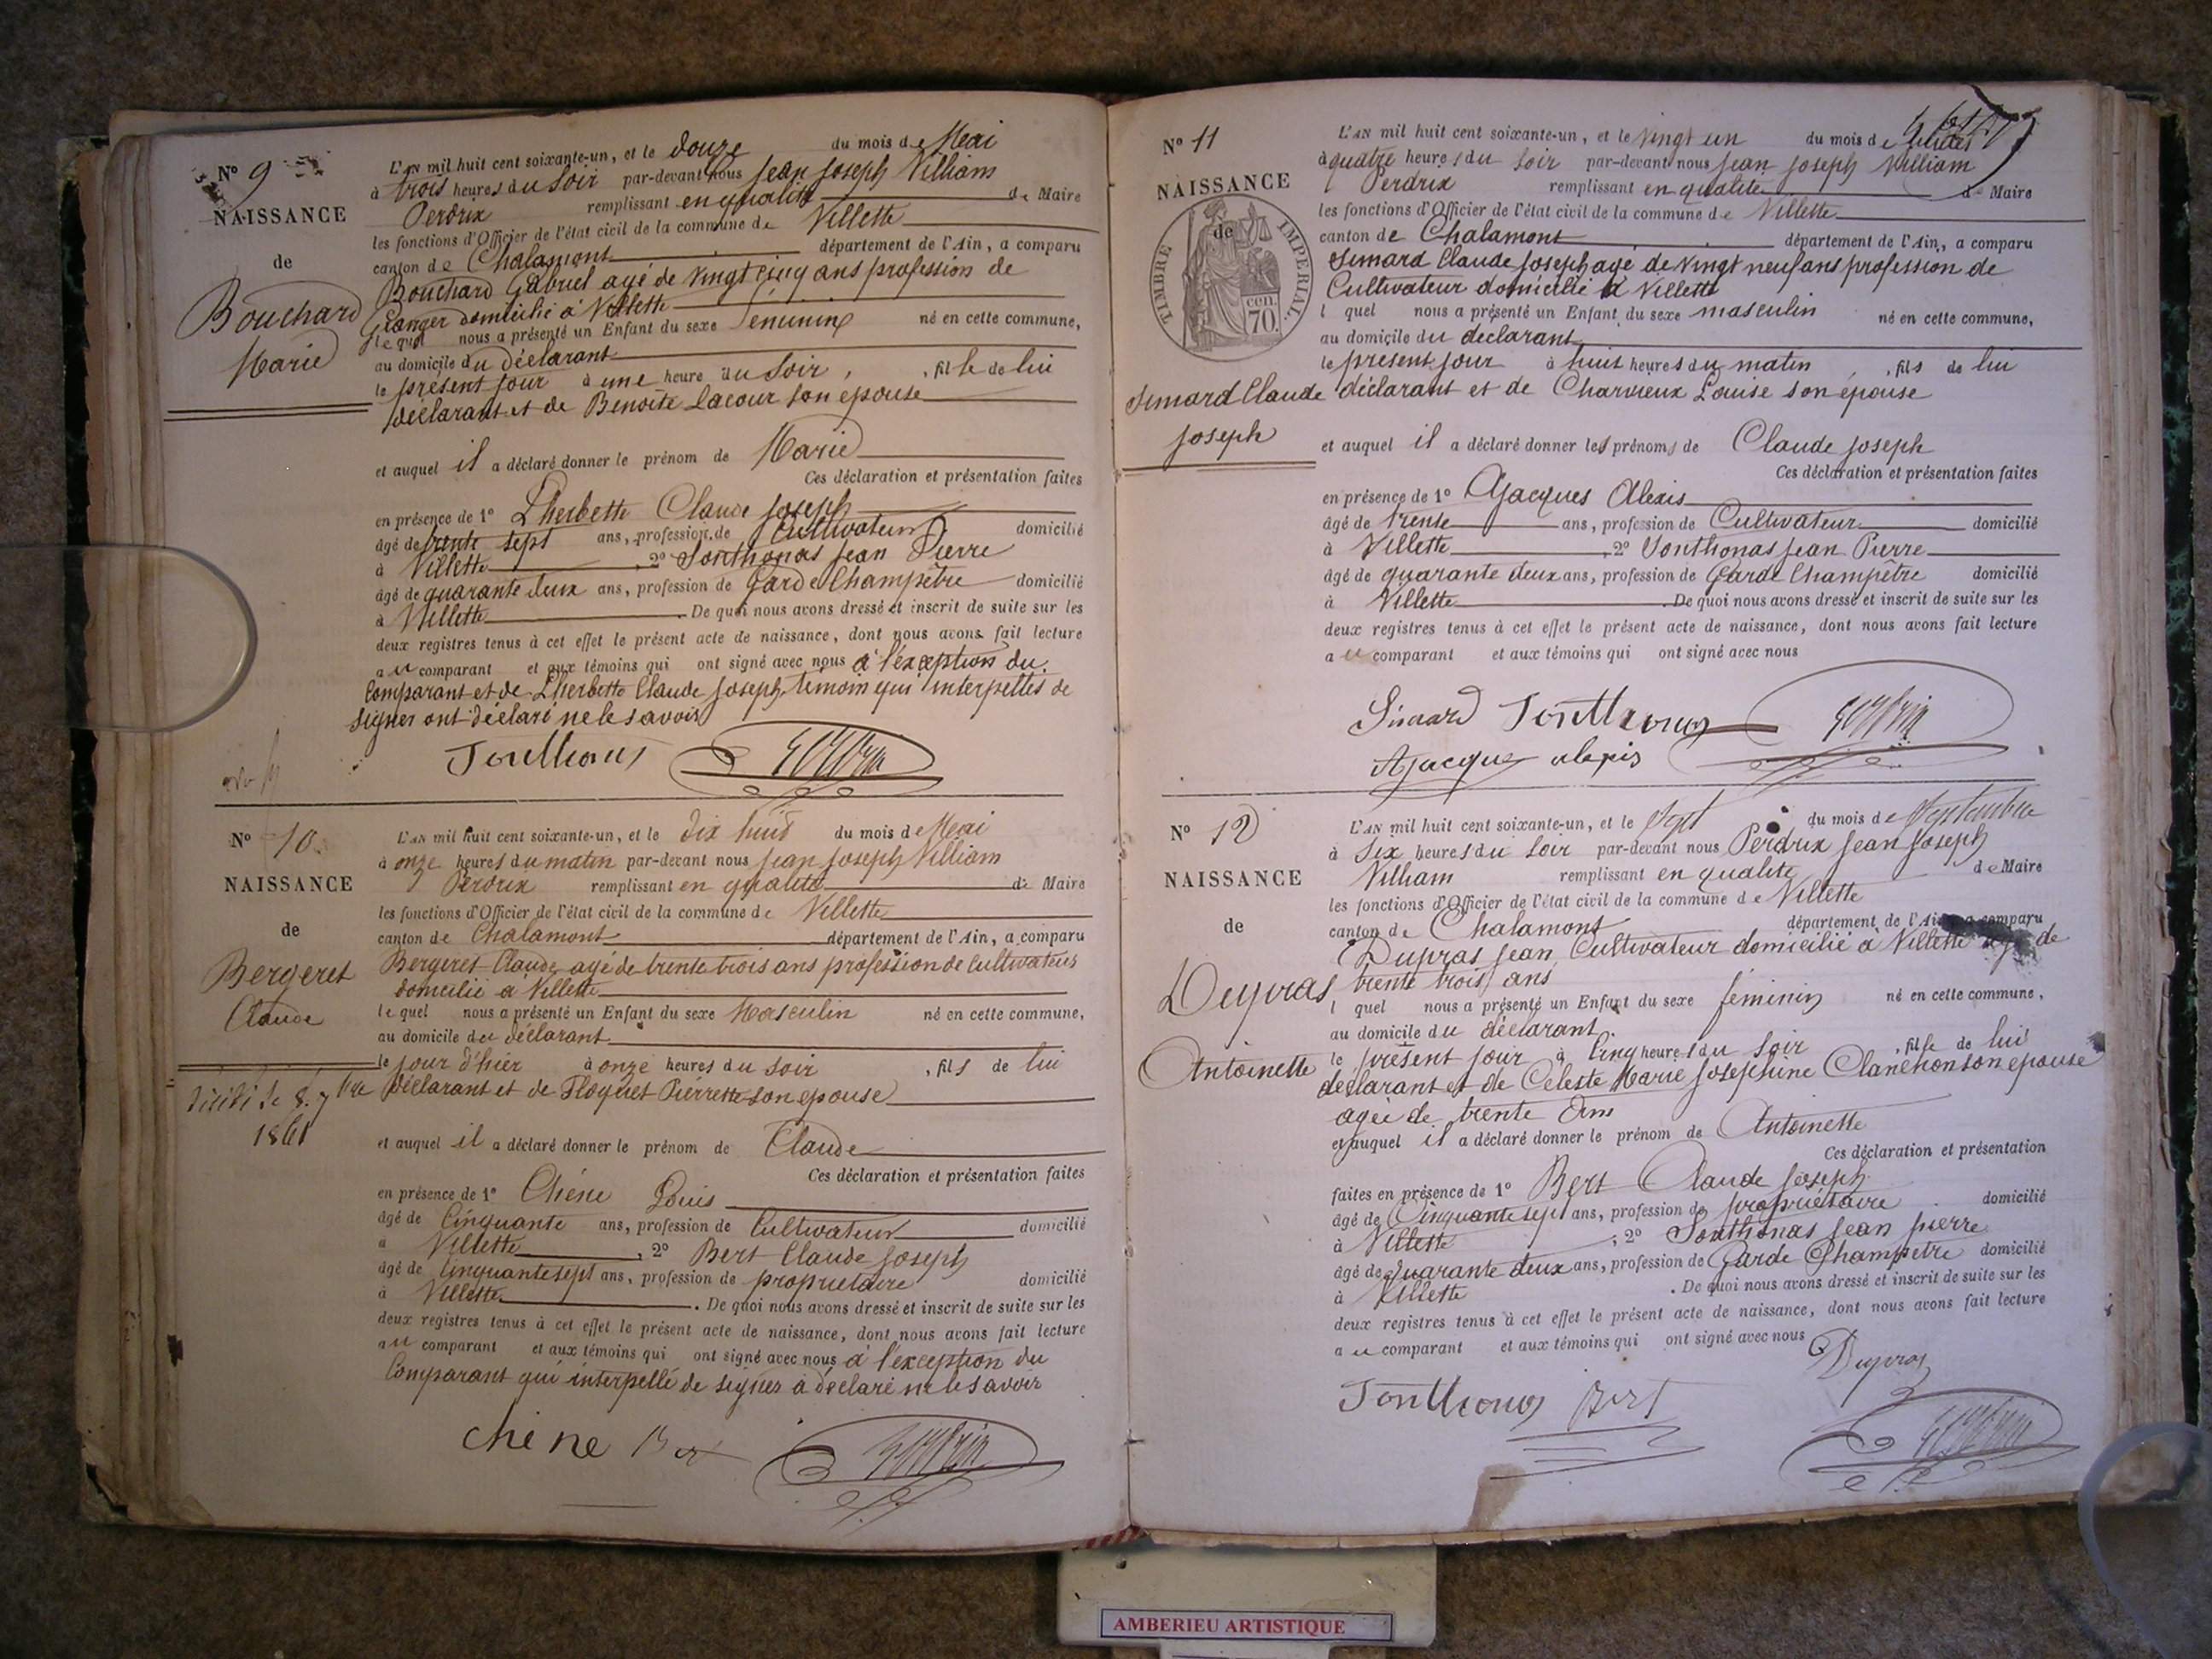 Nº 9
NAISSANCE
de
Bouchard
Marie
L'AN mil huit cent soixante-un, et le douze du mois de Mai
à trois heures du Soir par-devant nous Jean Joseph Villiam
Perdrix remplissant en qualité de Maire
les fonctions d'Officier de l'état civil de la commune de Villette
canton de Chalamont département de l'Ain, a comparu
Bouchard Gabriel agé de vingt cinq ans profession de
Granger domicilié à Villette
lequel nous a présenté un Enfant du sexe féminin né en cette commune,
au domicile du déclarant
le présent jour à une heure du Soir, fille de lui
déclarant et de Benoite Lacour son épouse
et auquel il a déclaré donner le prénom de Marie
Ces déclaration et présentation faites
en présence de 1º Lherbette Claude Joseph
âgé de trente sept ans, profession de Cultivateur domicilié
à Villette, 2º Tonthonas Jean Pierre
âgé de quarante deux ans, profession de Garde Champêtre domicilié
à Villette. De quoi nous avons dressé et inscrit de suite sur les
deux registres tenus à cet effet le présent acte de naissance, dont nous avons fait lecture
au comparant et aux témoins qui ont signé avec nous à l'exception du
Comparant et de Lherbette Claude Joseph témoin qui interpellés de
signer ont déclaré ne le savoir
Tonthonas Perdrix
Nº 10
NAISSANCE
de
Bergeret
Claude
décédé le 8. 7bre
1861
L'AN mil huit cent soixante-un, et le dix huit du mois de Mai
à onze heures du matin par-devant nous Jean Joseph Villiam
Perdrix remplissant en qualité de Maire
les fonctions d'Officier de l'état civil de la commune de Villette
canton de Chalamont département de l'Ain, a comparu
Bergeret Claude agé de trente trois ans profession de Cultivateur
domicilié à Villette
lequel nous a présenté un Enfant du sexe Masculin né en cette commune,
au domicile du déclarant
le jour d'hier à onze heures du soir, fils de lui
déclarant et de Floquet Pierrette son épouse
et auquel il a déclaré donner le prénom de Claude
Ces déclaration et présentation faites
en présence de 1º Chêne Louis
âgé de Cinquante ans, profession de Cultivateur domicilié
à Villette, 2º Bert Claude Joseph
âgé de Cinquante sept ans, profession de propriétaire domicilié
à Villette. De quoi nous avons dressé et inscrit de suite sur les
deux registres tenus à cet effet le présent acte de naissance, dont nous avons fait lecture
au comparant et aux témoins qui ont signé avec nous à l'exception du
Comparant qui interpellé de signer a déclaré ne le savoir
chene Bert Perdrix
Nº 11
NAISSANCE
de
TIMBRE IMPERIAL.
cen.
70.
Simard Claude
Joseph
L'AN mil huit cent soixante-un, et le vingt un du mois de
à quatre heures du soir par-devant nous Jean Joseph Villiam
Perdrix remplissant en qualité de Maire
les fonctions d'Officier de l'état civil de la commune de Villette
canton de Chalamont département de l'Ain, a comparu
Simard Claude Joseph agé de vingt neuf ans profession de
Cultivateur domicilié à Villette
l quel nous a présenté un Enfant du sexe masculin né en cette commune,
au domicile du déclarant
le présent jour à huit heures du matin, fils de lui
déclarant et de Charvieux Louise son épouse
et auquel il a déclaré donner les prénoms de Claude Joseph
Ces déclaration et présentation faites
en présence de 1º Ajacques Alexis
âgé de trente ans, profession de Cultivateur domicilié
à Villette, 2º Tonthonas Jean Pierre
âgé de quarante deux ans, profession de Garde Champêtre domicilié
à Villette. De quoi nous avons dressé et inscrit de suite sur les
deux registres tenus à cet effet le présent acte de naissance, dont nous avons fait lecture
au comparant et aux témoins qui ont signé avec nous
Simard Tonthonas Perdrix
Ajacques alexis
Nº 12
NAISSANCE
de
Dupras
Antoinette
L'AN mil huit cent soixante-un, et le Sept du mois de Septembre
à Six heures du soir par-devant nous Perdrix Jean Joseph
Villiam remplissant en qualité de Maire
les fonctions d'Officier de l'état civil de la commune de Villette
canton de Chalamont département de l'Ain a comparu
Dupras Jean Cultivateur domicilié à Villette agé de
trente trois ans
l quel nous a présenté un Enfant du sexe féminin né en cette commune,
au domicile du déclarant.
le présent jour à Cinq heures du soir, fille de lui
déclarant et de Celeste Marie Josephine Clanchon son épouse
agée de trente Ans
et auquel il a déclaré donner le prénom de Antoinette
Ces déclaration et présentation
faites en présence de 1º Bert Claude Joseph
âgé de Cinquante sept ans, profession de propriétaire domicilié
à Villette; 2º Tonthonas Jean pierre
âgé de Quarante deux ans, profession de Garde Champêtre domicilié
à Villette. De quoi nous avons dressé et inscrit de suite sur les
deux registres tenus à cet effet le présent acte de naissance, dont nous avons fait lecture
au comparant et aux témoins qui ont signé avec nous
Dupras
Tonthonas Bert Perdrix
AMBERIEU ARTISTIQUE